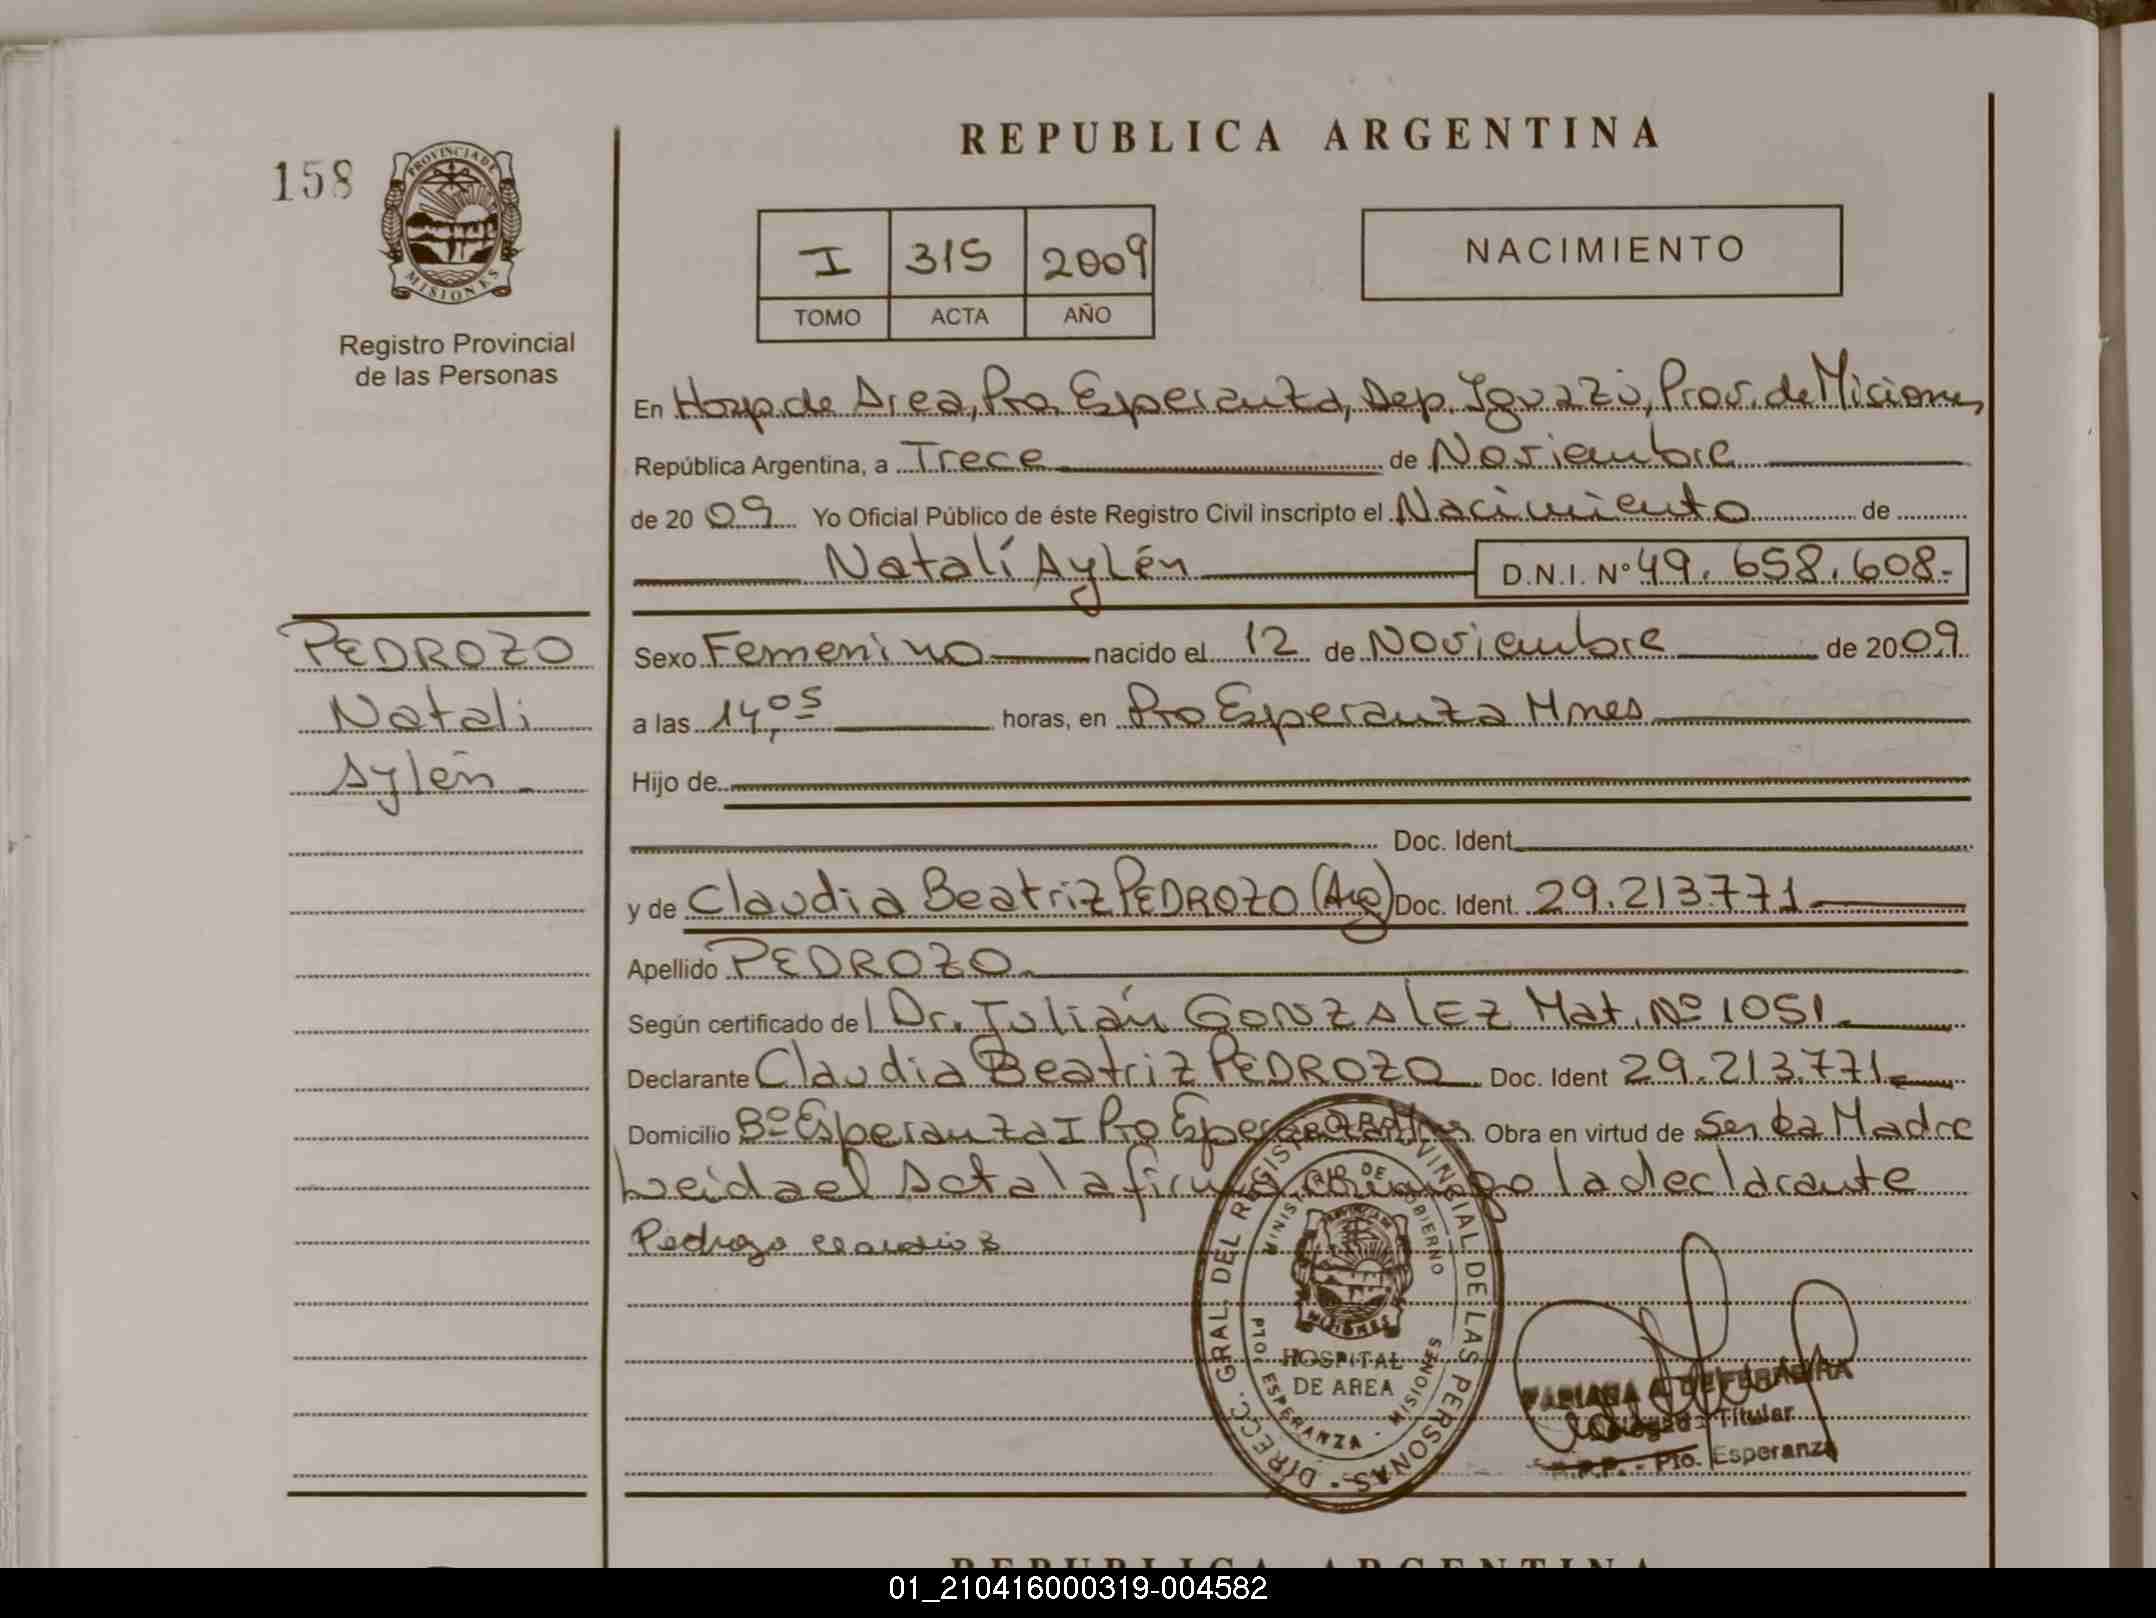 REPUBLICA ARGENTINA
158
PROVINCIA DE
MISIONES
Registro Provincial
de las Personas
I 315 2009
TOMO ACTA AÑO
NACIMIENTO
En Hosp. de Area, Pto Esperanza, Dep. Iguazú, Prov. de Misiones
República Argentina, a Trece de Noviembre
de 2009 Yo Oficial Público de éste Registro Civil inscripto el Nacimiento de
Natalí Aylén D.N.I. Nº 49.658.608-
PEDROZO
Natali
Aylén
Sexo Femenino nacido el 12 de Noviembre de 2009
a las 14,05 horas, en Pto Esperanza Mnes
Hijo de
Doc. Ident.
y de Claudia Beatriz PEDROZO (Arg) Doc. Ident. 29.213.771
Apellido PEDROZO
Según certificado del Dr. Julián GONZALEZ Mat. Nº 1051
Declarante Claudia Beatriz PEDROZO Doc. Ident 29.213.771
Domicilio Bº Esperanza I Pto Esperanza Mnes Obra en virtud de Ser la Madre
Leida el Acta la firma conmigo la declarante
Pedrozo Claudia B
DIRECC. GRAL. DEL REGISTRO PROVINCIAL DE LAS PERSONAS
MINISTERIO DE GOBIERNO
MISIONES
HOSPITAL
DE AREA
PTO. ESPERANZA - MISIONES
FABIANA A. DE FERREIRA
Titular
R.P.P. - Pto. Esperanza
REPUBLICA ARGENTINA
01_210416000319-004582